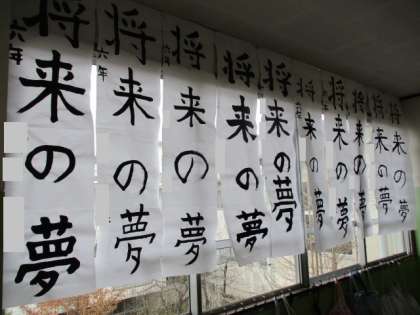 将来の夢
将来の夢
将来の夢
将来の夢
将来の夢
将来の夢
将来の夢
将来の夢
将来の夢
六年
将来の夢
六年